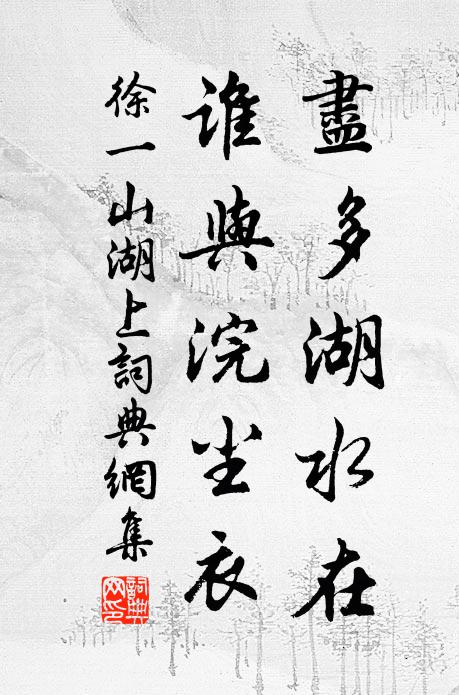 盡多湖水在
誰與浣尘衣
徐一山湖上詞典網集
詞典
网印